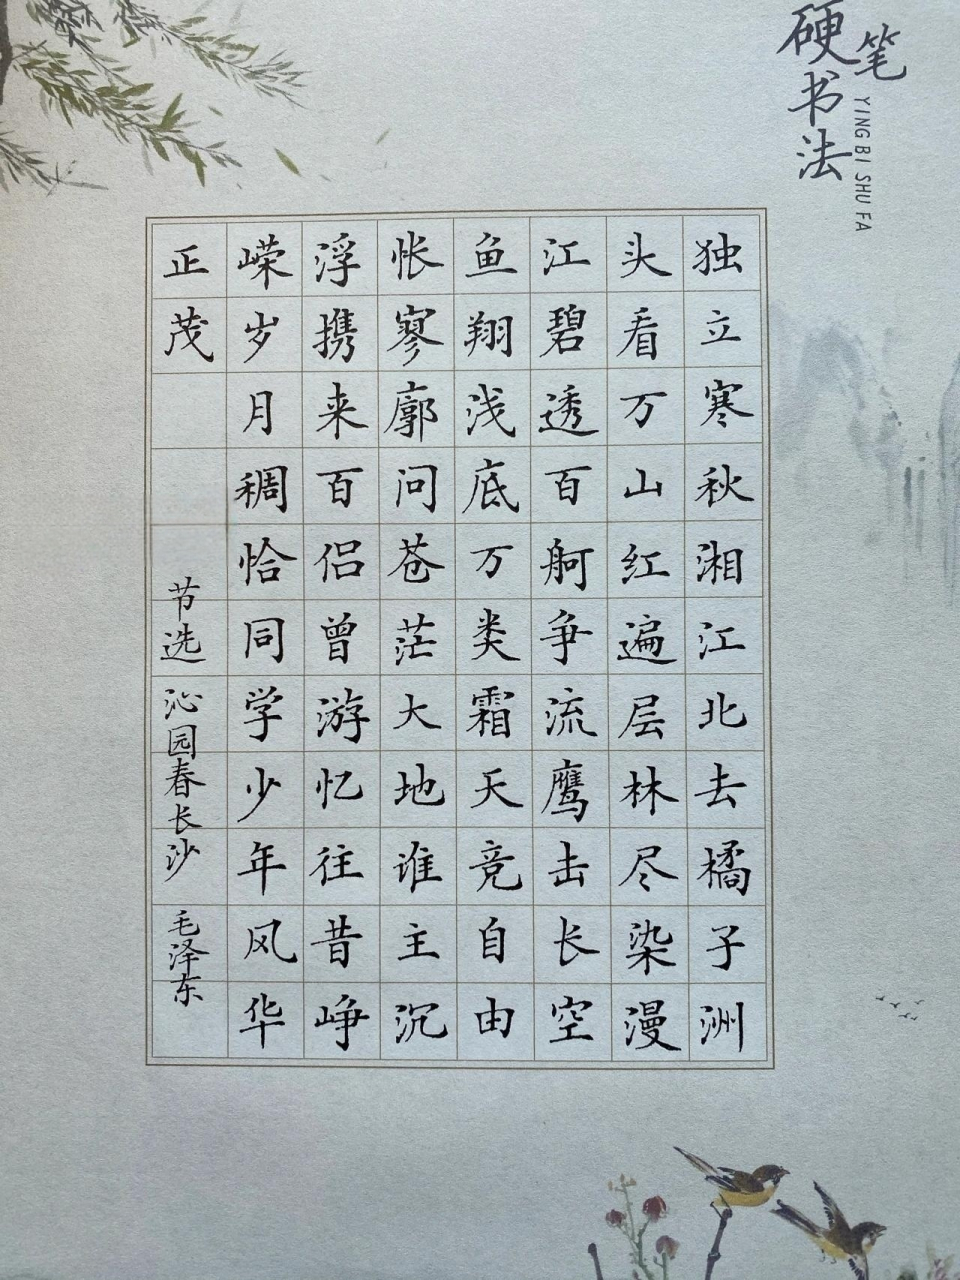 硬笔
书法
YING BI SHU FA
独立寒秋湘江北去橘子洲
头看万山红遍层林尽染漫
江碧透百舸争流鹰击长空
鱼翔浅底万类霜天竞自由
怅寥廓问苍茫大地谁主沉
浮携来百侣曾游忆往昔峥
嵘岁月稠恰同学少年风华
正茂
节选 沁园春长沙 毛泽东